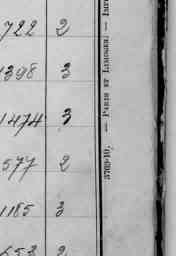 722 2
1398 3
1474 3
577 2
1185 3
653 2
3769-10. — PARIS ET LIMOGES. — IMP